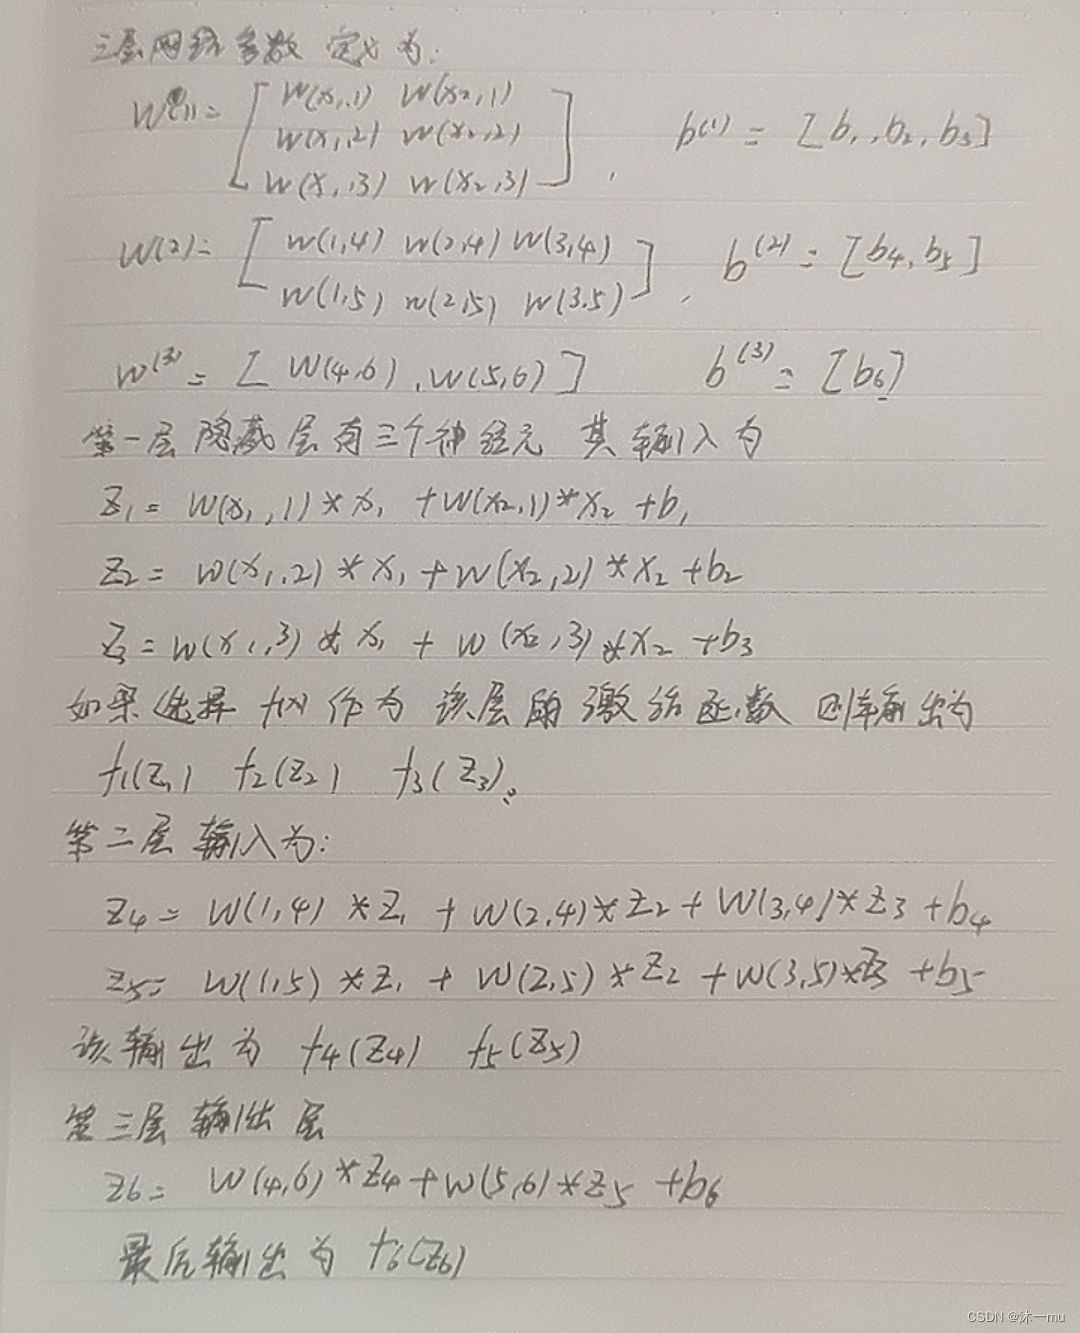 三层网络参数 定义为:
W(1)= [ W(x1,1) W(x2,1)
W(x1,2) W(x2,2)
W(x1,3) W(x2,3) ] , b(1) = [b1,b2,b3]
W(2)= [ W(1,4) W(2,4) W(3,4)
W(1,5) W(2,5) W(3,5) ] , b(2) = [b4,b5]
W(3) = [ W(4,6) , W(5,6) ] b(3) = [b6]
第一层 隐藏层有三个神经元 其输入为
Z1 = W(x1,1)*x1 +W(x2,1)*x2 +b1
Z2 = W(x1,2)*x1+W(x2,2)*x2+b2
Z3 = W(x1,3)*x1 + W(x2,3)*x2 +b3
如果选择 f(x) 作为 该层的激活函数 则输出为
f1(Z1) f2(Z2) f3(Z3)。
第二层 输入为:
Z4= W(1,4)*Z1 +W(2,4)*Z2+W(3,4)*Z3 +b4
Z5= W(1,5)*Z1 + W(2,5)*Z2 +W(3,5)*Z3 +b5
该输出为 f4(Z4) f5(Z5)
第三层 输出层
Z6= W(4,6)*Z4+W(5,6)*Z5 +b6
最后输出为 f6(Z6)
CSDN @沐一mu